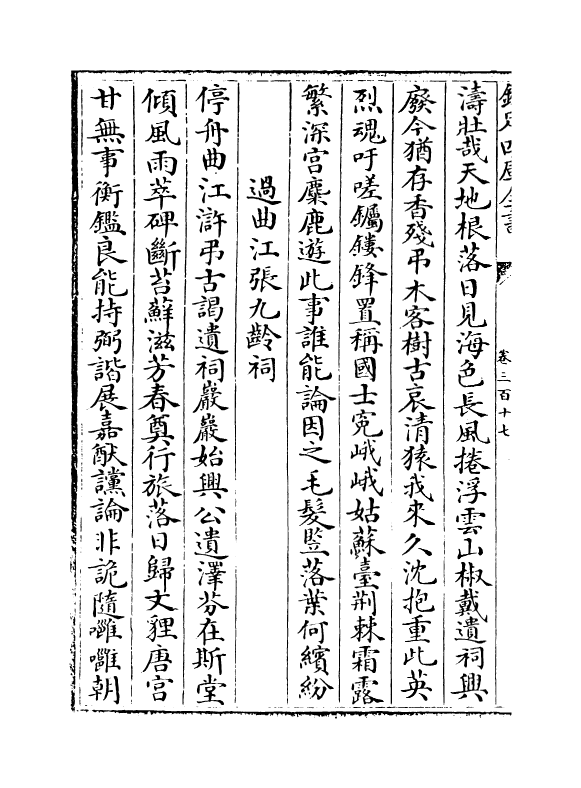 欽定四庫全書
卷三百十七
濤壯哉天地根落日見海色長風捲浮雲山椒戴遺祠興
廢今猶存香殘弔木客樹古哀清猿我來久沈抱重此英
烈魂吁嗟钃鏤鋒置稱國士寃峨峨姑蘇臺荆棘霜露
繁深宫麋鹿遊此事誰能論因之毛髮竪落葉何繽紛
過曲江張九齡祠
停舟曲江滸弔古謁遺祠巖巖始興公遺澤芬在斯堂
傾風雨萃碑斷苔蘚滋芳春奠行旅落日歸文貍唐宫
甘無事衡鑑良能持弼諧展嘉猷讜論非詭隨囕囕朝